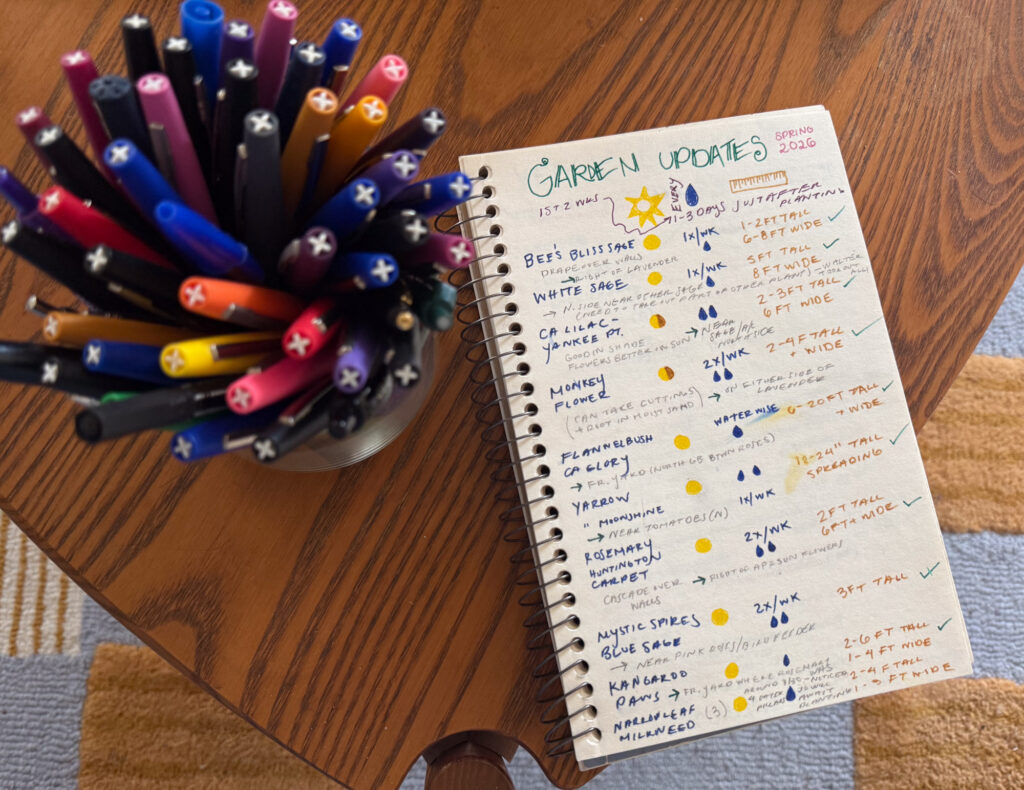 GARDEN UPDATES
SPRING 2026
1ST 2 WKS
EVERY
1-3 DAYS JUST AFTER PLANTING
BEE'S BLISS SAGE 1X/WK 1-2 FT TALL
6-8 FT WIDE ✓
DRAPE OVER WALLS
→ RIGHT OF LAVENDER
WHITE SAGE 1X/WK 5 FT TALL ✓
8 FT WIDE
→ N. SIDE NEAR OTHER SAGE
(NEED TO TAKE OUT PART OF OTHER PLANT) - WALTER
TOOK OUT ALL)
CA LILAC - 2-3 FT TALL ✓
YANKEE PT. 6 FT WIDE
GOOD IN SHADE
FLOWERS BETTER IN SUN
→ NEAR
SAGE/A/C
NORTH SIDE
MONKEY FLOWER 2X/WK 2-4 FT TALL ✓
+ WIDE
(CAN TAKE CUTTINGS
+ ROOT IN MOIST SAND)
→ ON EITHER SIDE OF
LAVENDER
FLANNELBUSH WATER WISE 6-20 FT TALL ✓
CA GLORY + WIDE
→ FR. YARD (NORTH GB BTWN ROSES)
YARROW 18-24" TALL ✓
" MOONSHINE 1X/WK SPREADING
→ NEAR TOMATOES (N)
ROSEMARY 2X/WK 2 FT TALL ✓
HUNTINGTON 6 FT + WIDE
CARPET
CASCADE OVER
WALLS
→ RIGHT OF APP SUN FLOWERS
MYSTIC SPIRES 2X/WK 3 FT TALL ✓
BLUE SAGE
→ NEAR PINK ROSES/BIRD FEEDER
KANGAROO 2-6 FT TALL ✓
PAWS 1-4 FT WIDE
→ FR. YARD WHERE ROSEMARY
WAS
NARROWLEAF (3) 2-4 FT TALL
MILKWEED 1-3 FT WIDE
AROUND 3/30 - NOTICED
4 EATEN
WILL
AWAIT
PLANTING